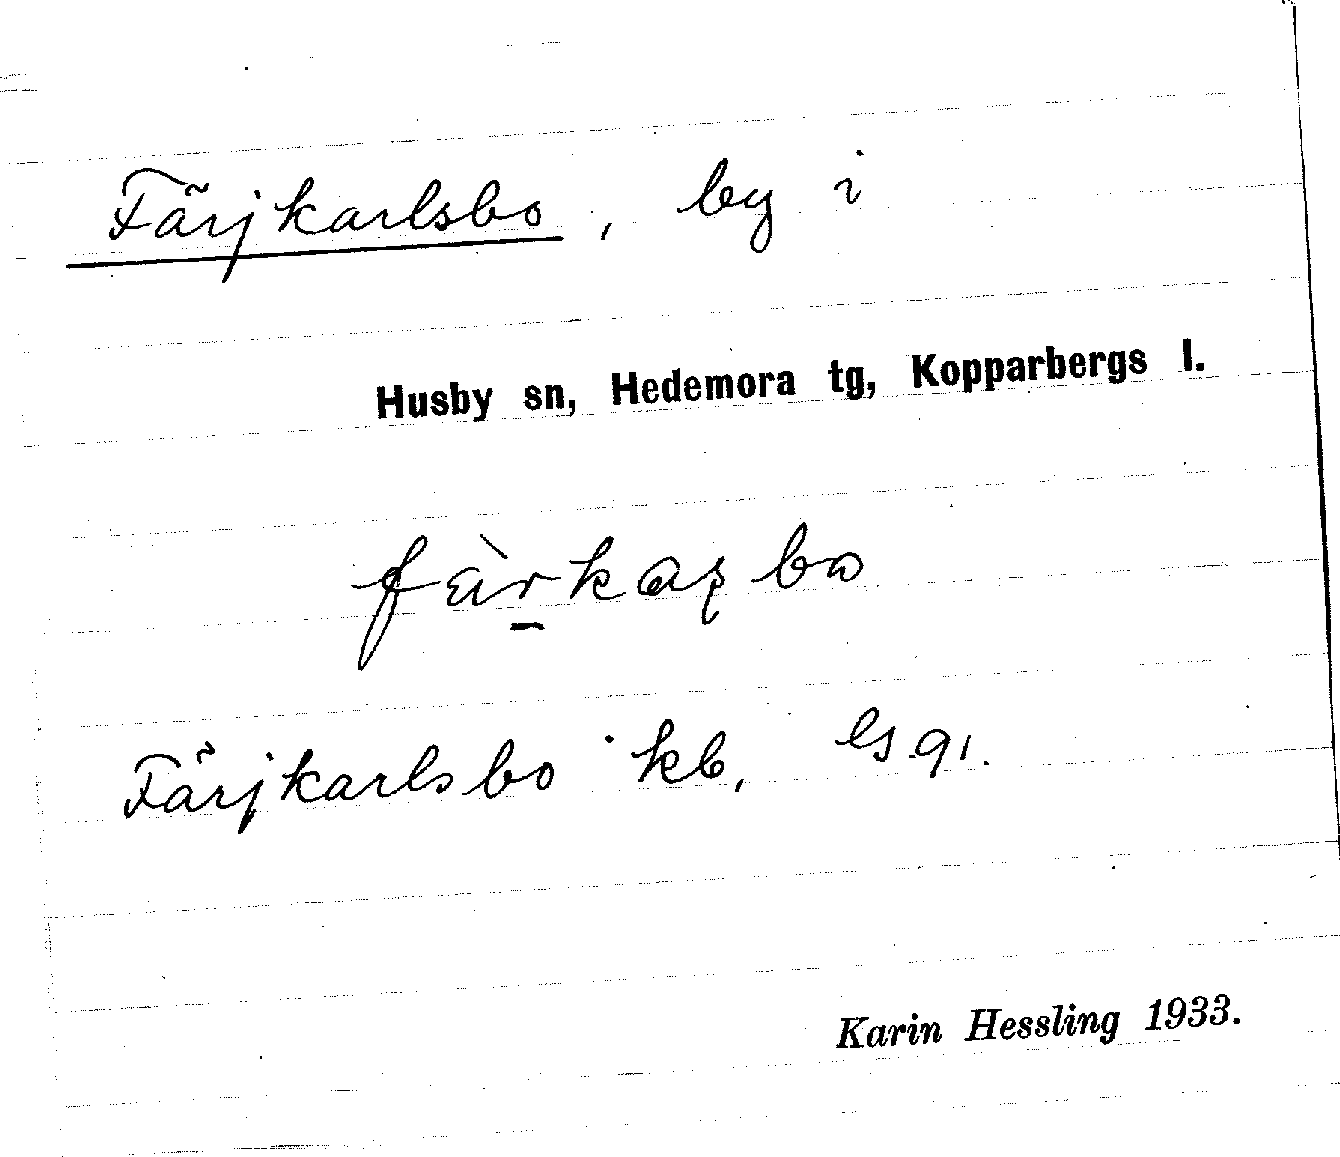 Färjkarlsbo, by i
Husby sn, Hedemora tg, Kopparbergs l.
Färjkarlsbo kb,
Karin Hessling 1933.